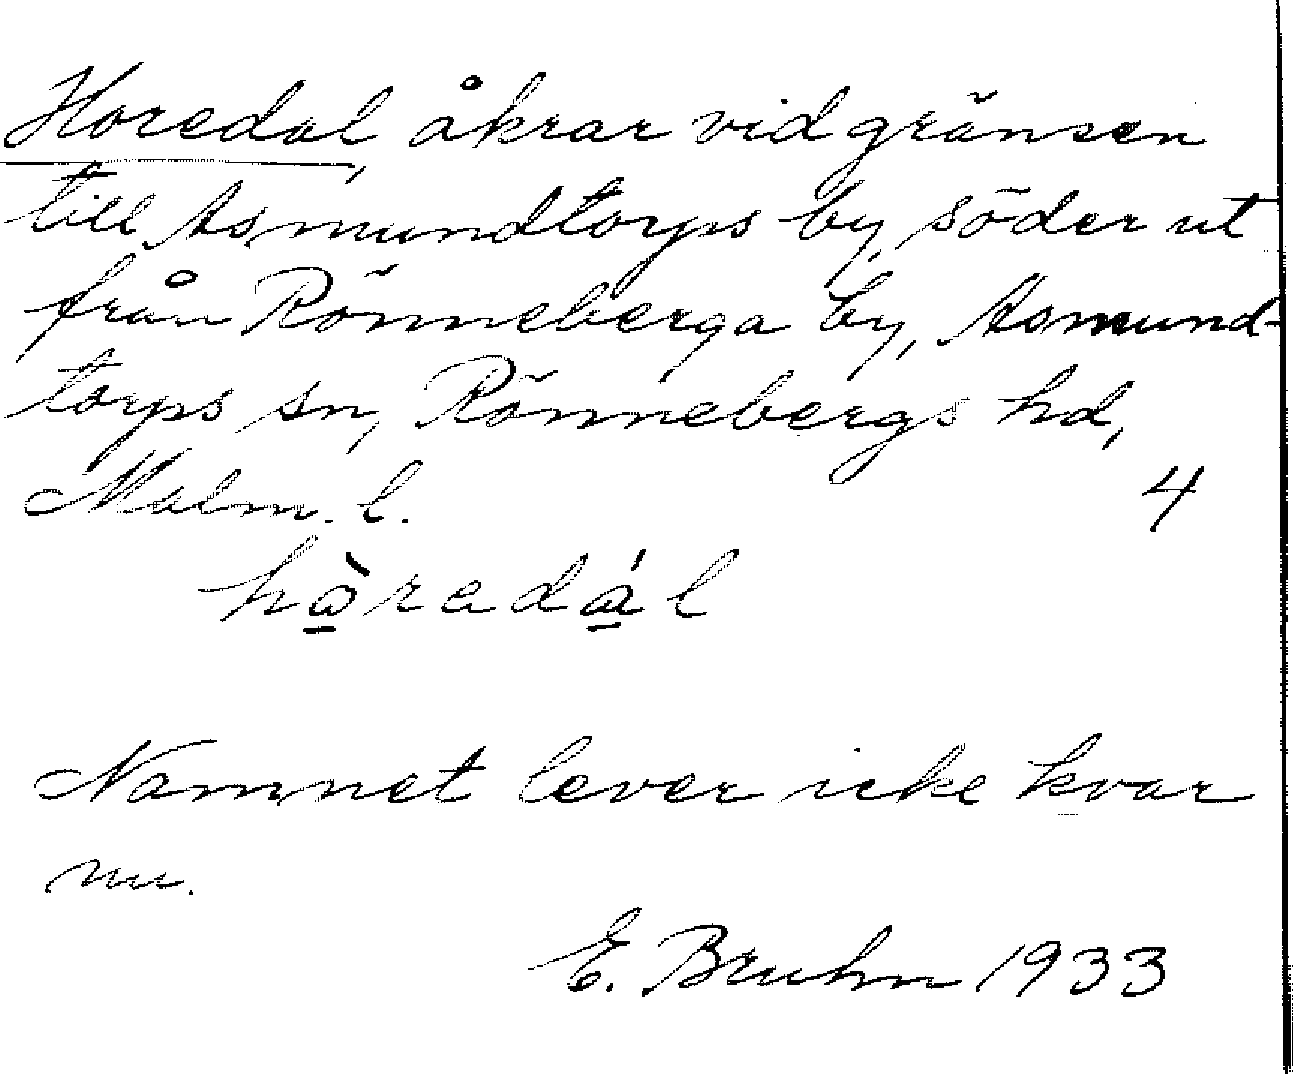 Horedal, åkrar vid gränsen
till Asmundtorps by, söder ut
från Rönneberga by, Asmund-
torps sn, Rönnebergs hd,
Malm. l. 4
Namnet lever icke kvar
nu.
E. Bruhn 1933